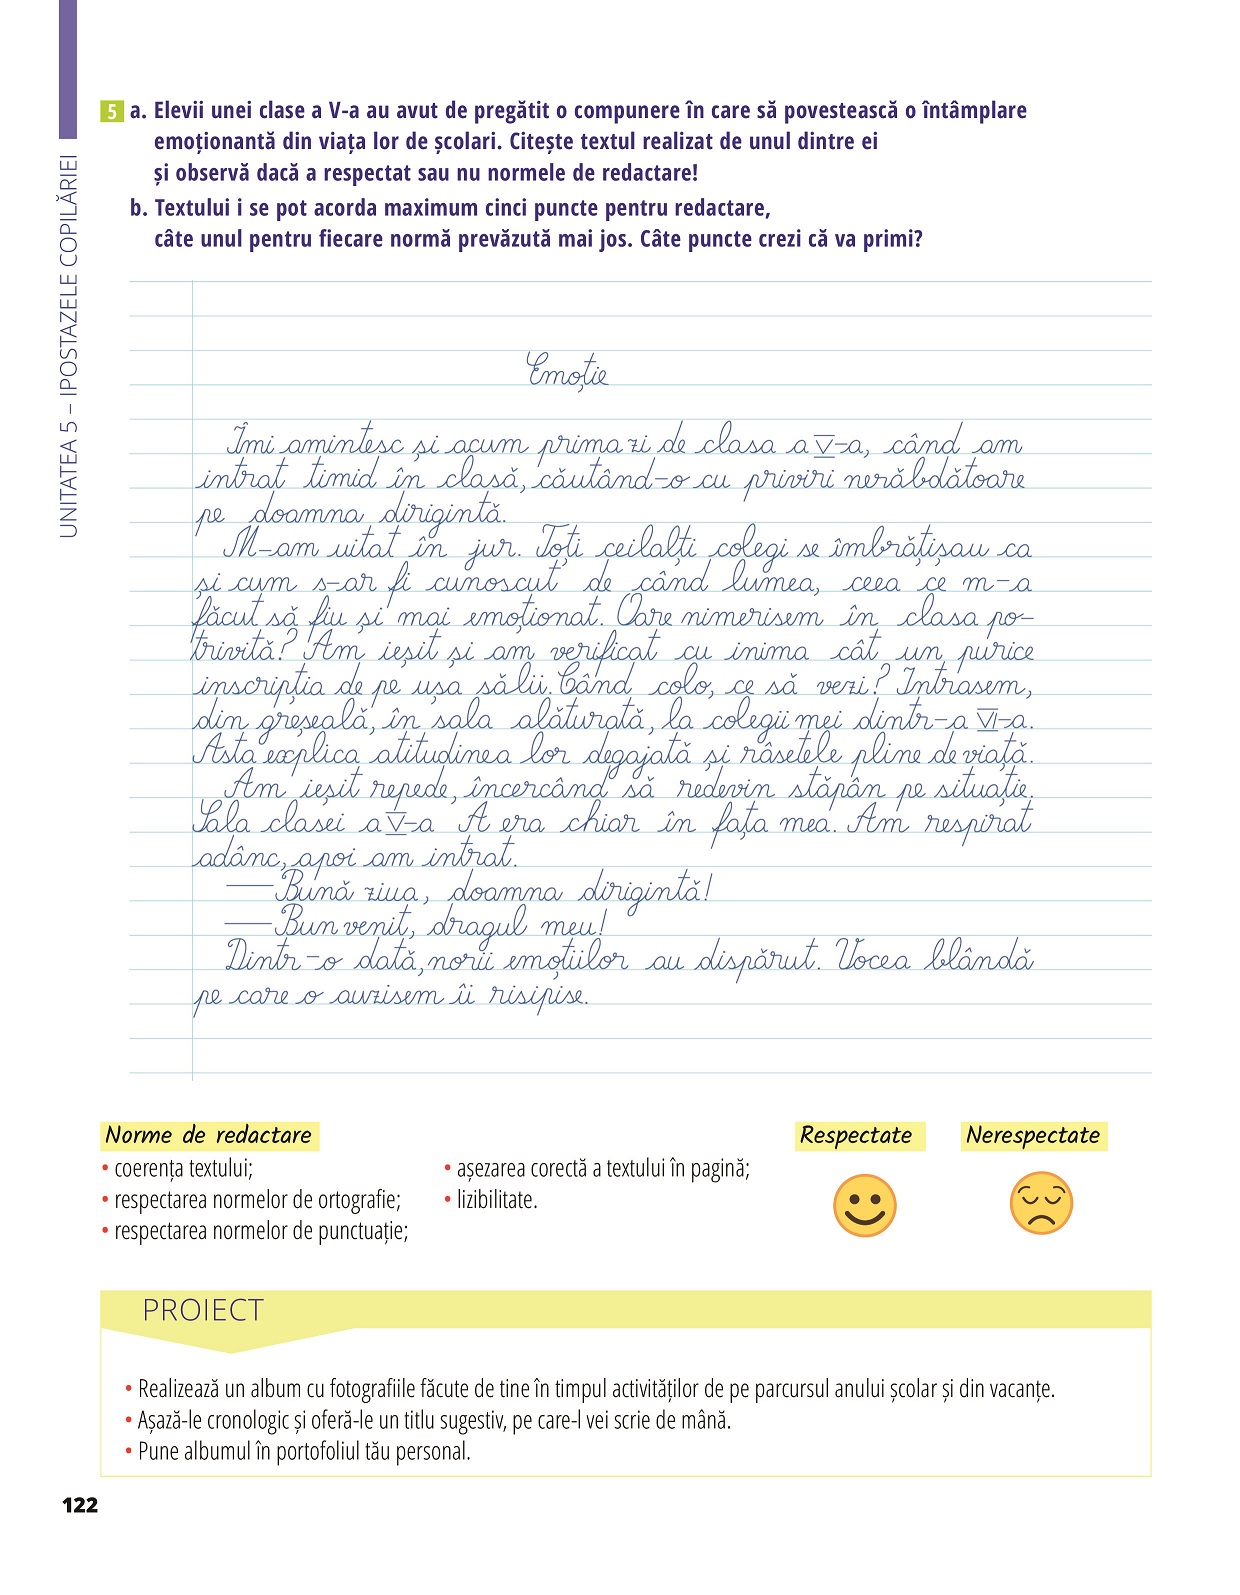 UNITATEA 5 – IPOSTAZELE COPILĂRIEI
5 a. Elevii unei clase a V-a au avut de pregătit o compunere în care să povestească o întâmplare
emoționantă din viața lor de școlari. Citește textul realizat de unul dintre ei
și observă dacă a respectat sau nu normele de redactare!
b. Textului i se pot acorda maximum cinci puncte pentru redactare,
câte unul pentru fiecare normă prevăzută mai jos. Câte puncte crezi că va primi?
Emoție
Îmi amintesc și acum prima zi de clasa a V-a, când am
intrat timid în clasă, căutând-o cu priviri nerăbdătoare
pe doamna dirigintă.
M-am uitat în jur. Toți ceilalți colegi se îmbrățișau ca
și cum s-ar fi cunoscut de când lumea, ceea ce m-a
făcut să fiu și mai emoționat. Oare nimerisem în clasa po-
trivită? Am ieșit și am verificat cu inima cât un purice
inscripția de pe ușa sălii. Când colo, ce să vezi? Intrasem,
din greșeală, în sala alăturată, la colegii mei dintr-a VI-a.
Asta explica atitudinea lor degajată și râsetele pline de viață.
Am ieșit repede, încercând să redevin stăpân pe situație.
Sala clasei a V-a A era chiar în fața mea. Am respirat
adânc, apoi am intrat.
— Bună ziua, doamna dirigintă!
— Bun venit, dragul meu!
Dintr-o dată, norii emoțiilor au dispărut. Vocea blândă
pe care o auzisem îi risipise.
Norme de redactare
• coerența textului;
• respectarea normelor de ortografie;
• respectarea normelor de punctuație;
• așezarea corectă a textului în pagină;
• lizibilitate.
Respectate
Nerespectate
PROIECT
• Realizează un album cu fotografiile făcute de tine în timpul activităților de pe parcursul anului școlar și din vacanțe.
• Așază-le cronologic și oferă-le un titlu sugestiv, pe care-l vei scrie de mână.
• Pune albumul în portofoliul tău personal.
122